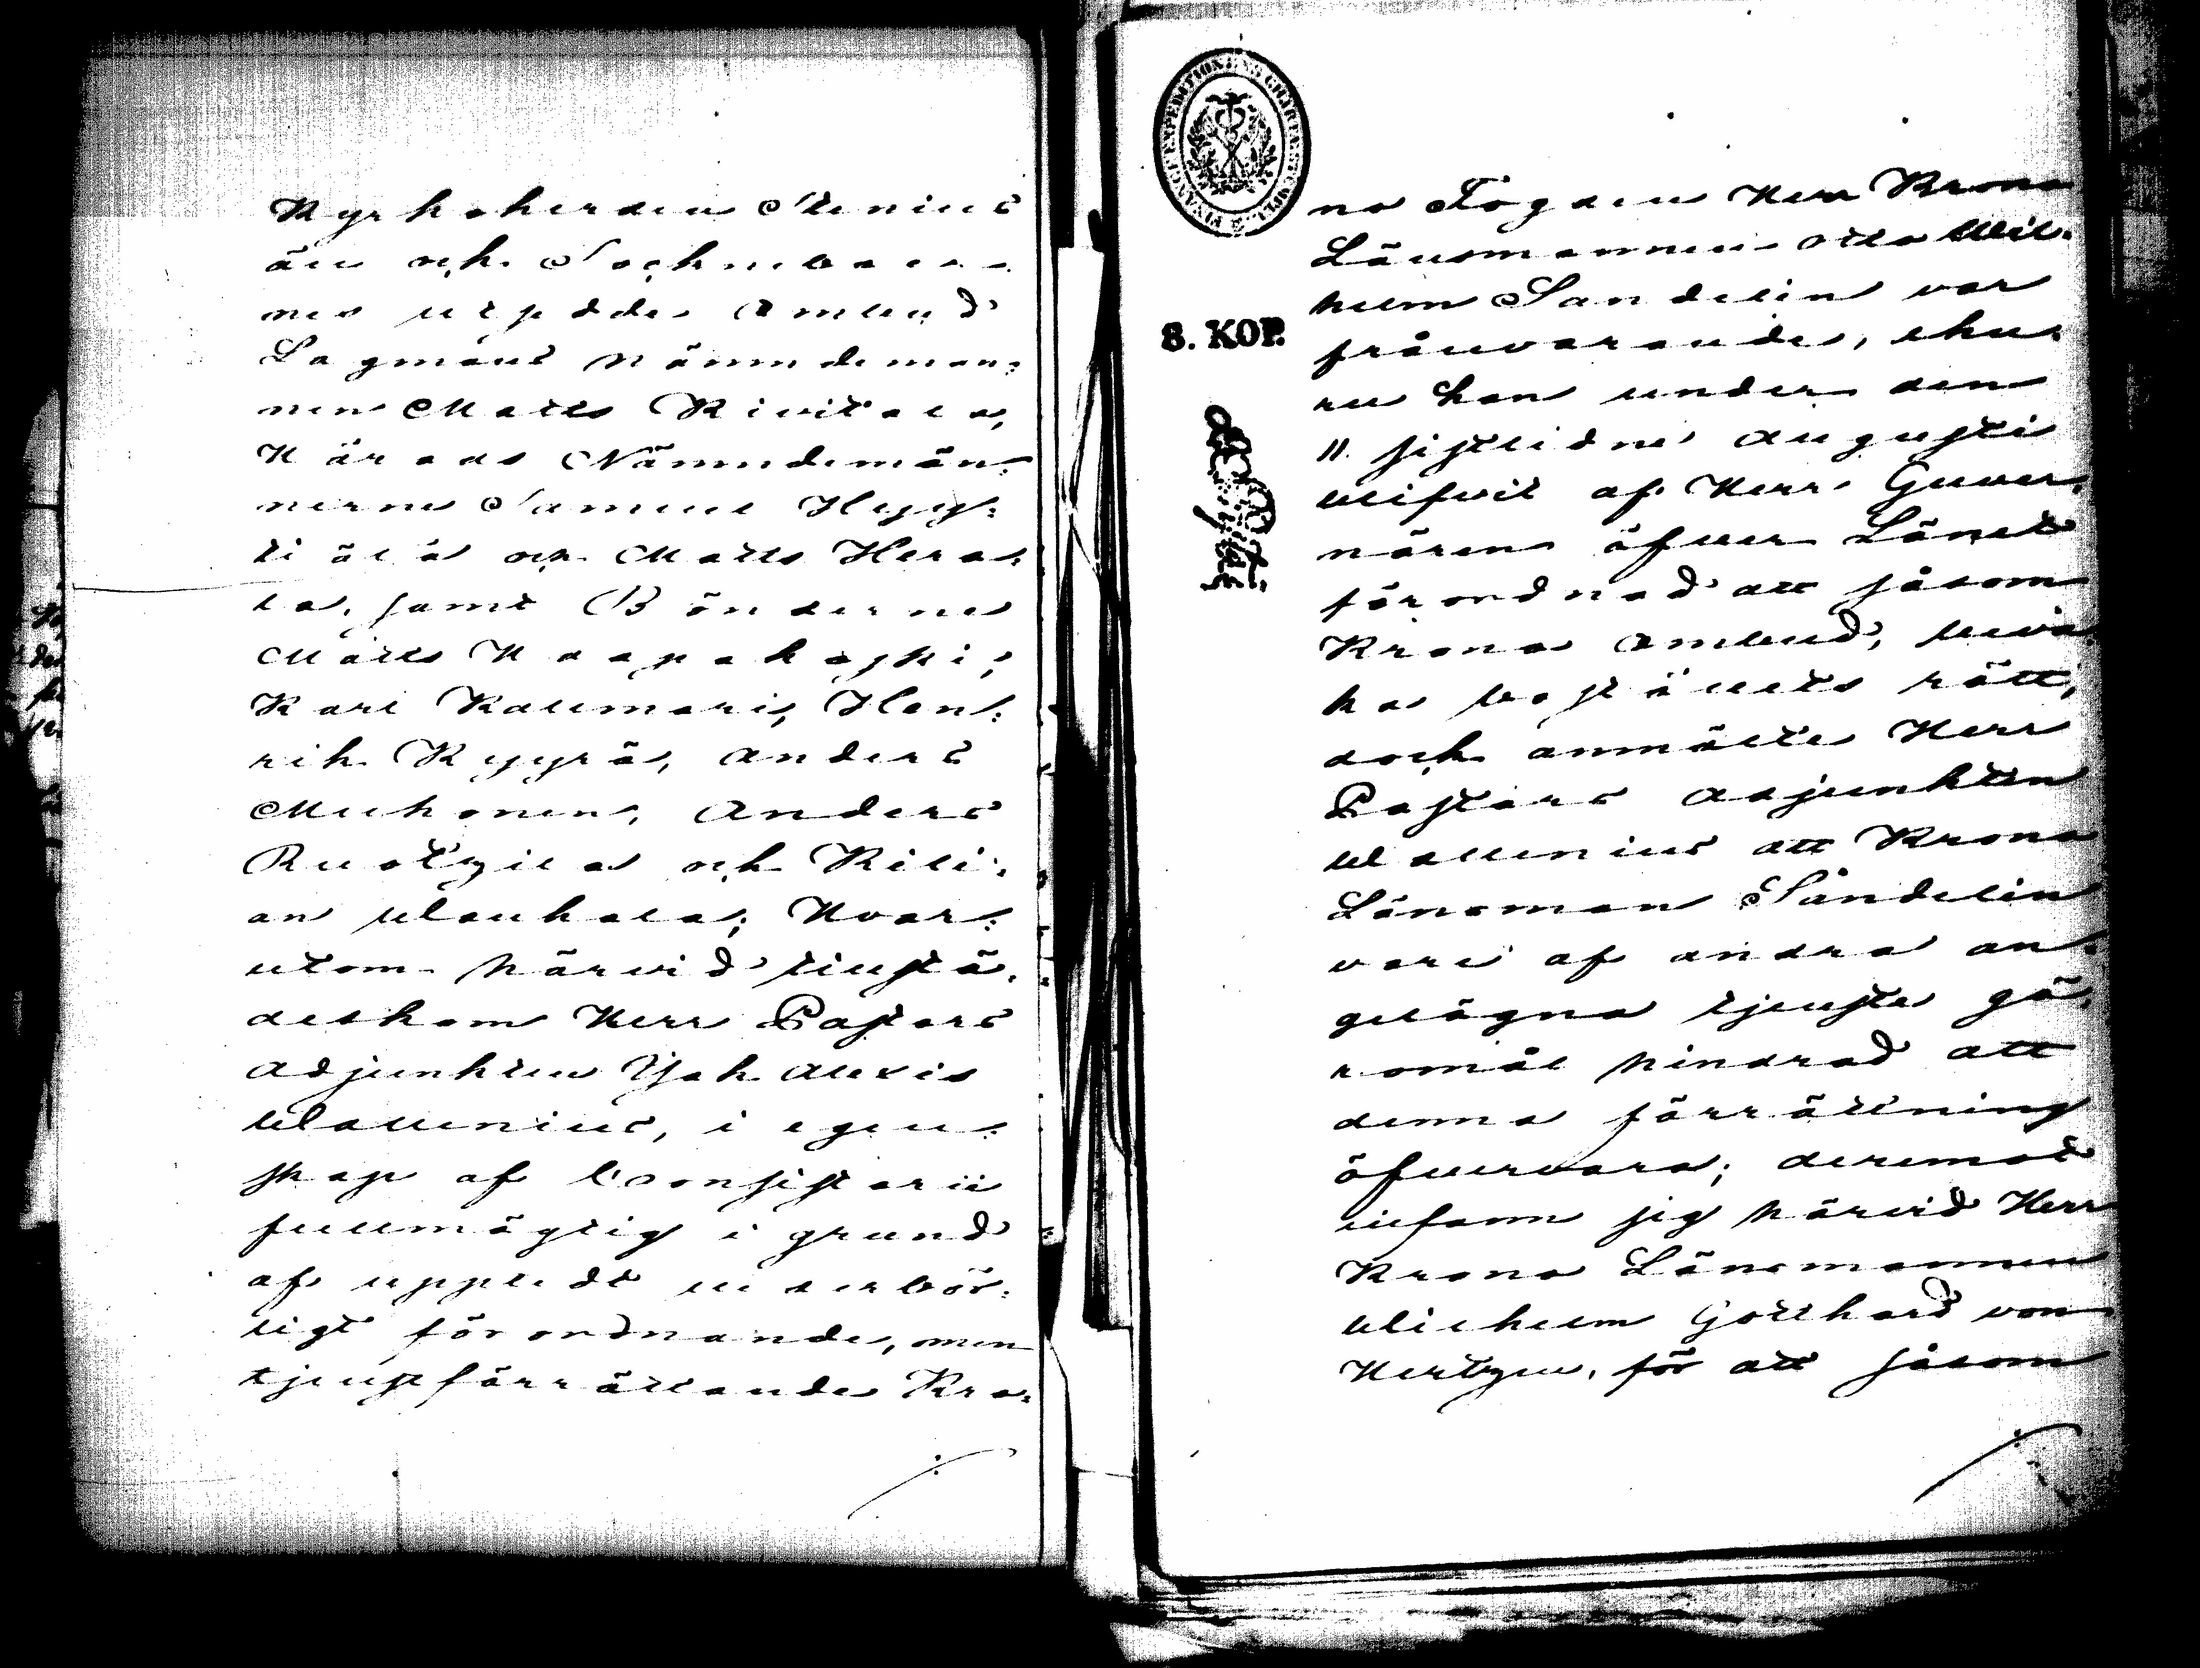 Kyrkoherden Stenius
än och Sockneboer-
nes utsedde Ombud
Lagmans Nämndeman-
nen Matts Kivitalo,
Härads Nämndemän-
nerne Samuel Hegg-
tiälä och Matts Hera-
la, samt Bönderne
Matts Haapakoski,
Karl Kallmari, Hen-
rik Kyyrä, Anders
Muhonen, Anders
Ruotzila och Kili-
an Ulaukala; Hvar-
utom härvid tillstä-
deskom Herr Pastors
Adjunkten Joh. Alexis
Wallenius, i egen-
skap af Consistorii
fullmägtig i grund
af uppledt vederbör-
ligt förordnande, men
tjenstförrättande Kro-
FINANCE EXPEDITIONENS CHARTÆ
8. KOP.
no Fogden Herr Krono
Länsmannen Otto Wil-
helm Sandelin var
frånvarande, ehu-
ru han under den
11 sistlidne Augusti
blifvit af Herr Guver-
nören öfver Länet
förordnad att såsom
Krono Ombud, beva-
ka boställets rätt,
doch anmälte Herr
Pastors Adjunkten
Wallenius att Krono
Länsman Sandelin
vore af andra an-
gelägna tjenste gö-
romål hindrad att
denna förrättning
öfvervara; deremot
infann sig härvid Herr
Krono Länsmannen
Wilhelm Gotthard von
Hertzen, för att såsom